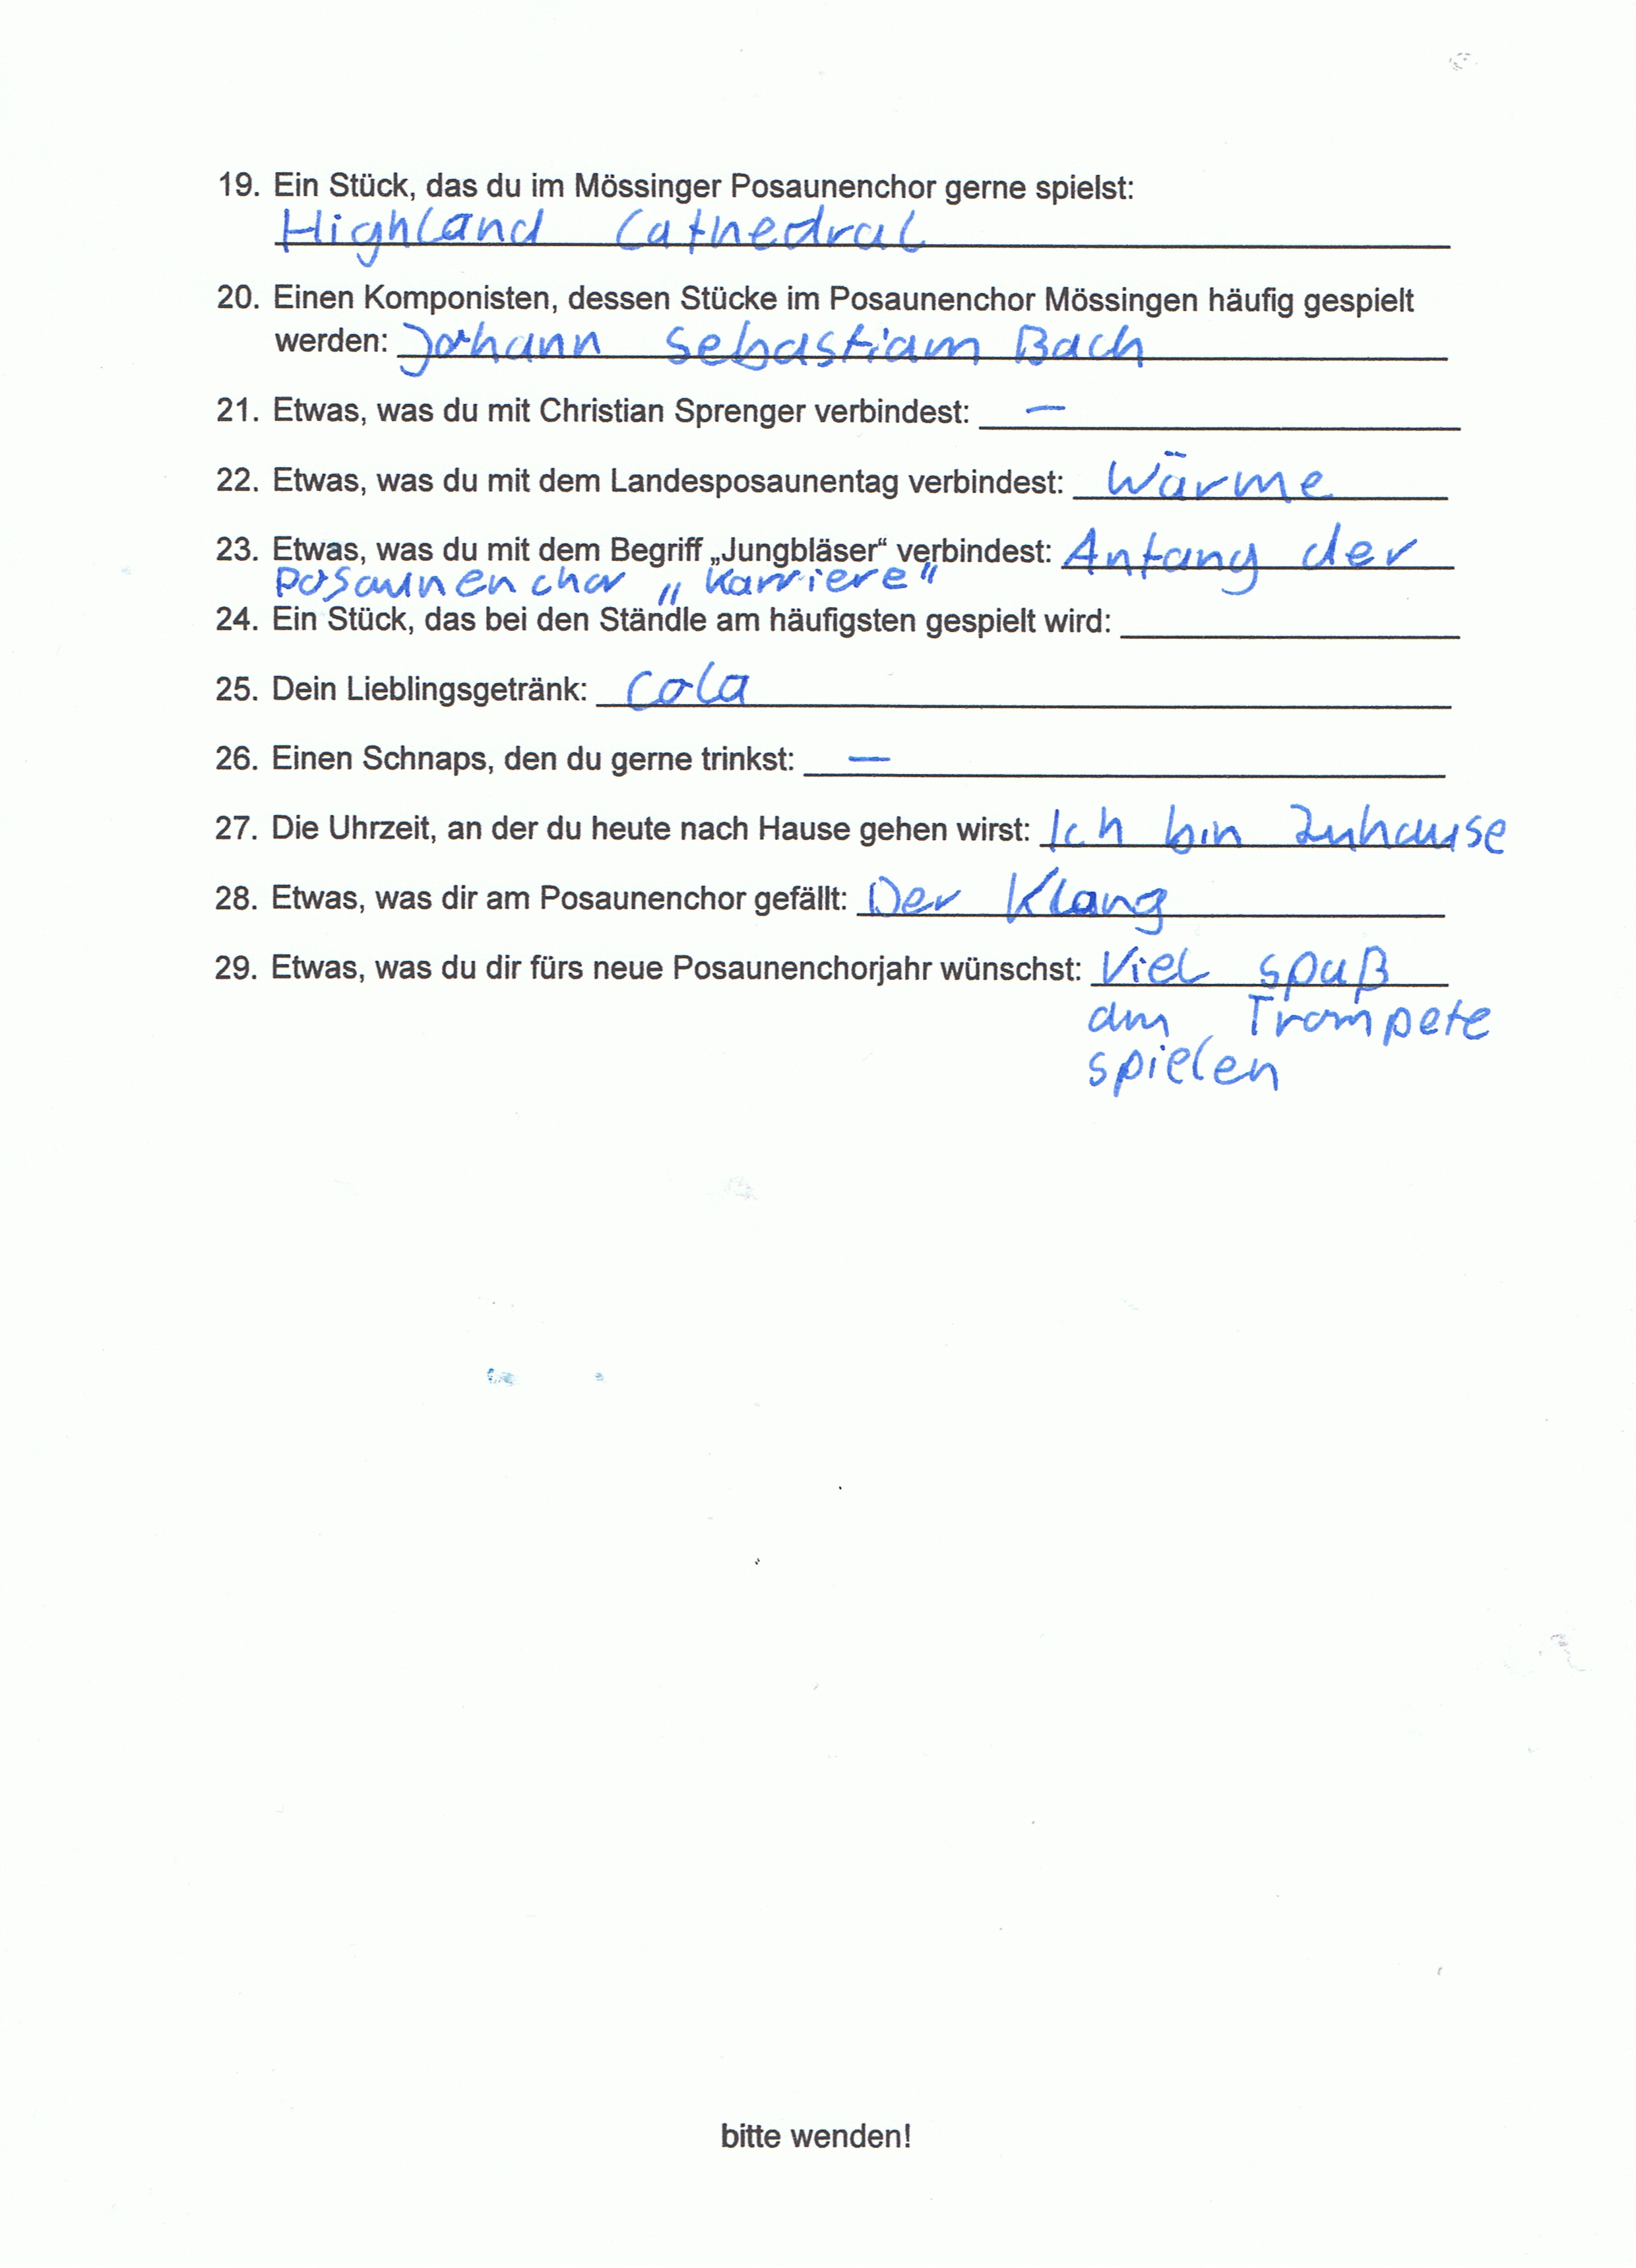 19. Ein Stück, das du im Mössinger Posaunenchor gerne spielst:
Highland Cathedral
20. Einen Komponisten, dessen Stücke im Posaunenchor Mössingen häufig gespielt
werden: Johann Sebastian Bach
21. Etwas, was du mit Christian Sprenger verbindest: —
22. Etwas, was du mit dem Landesposaunentag verbindest: Wärme
23. Etwas, was du mit dem Begriff „Jungbläser“ verbindest: Anfang der
posaunenchor „Karriere"
24. Ein Stück, das bei den Ständle am häufigsten gespielt wird:
25. Dein Lieblingsgetränk: Cola
26. Einen Schnaps, den du gerne trinkst: —
27. Die Uhrzeit, an der du heute nach Hause gehen wirst: Ich bin Zuhause
28. Etwas, was dir am Posaunenchor gefällt: Der Klang
29. Etwas, was du dir fürs neue Posaunenchorjahr wünschst: Viel spaß
am Trompete
spielen
bitte wenden!